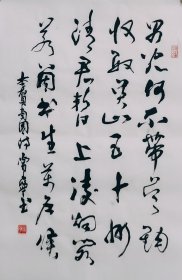 男儿何不带吴钩
收取关山五十州
请君暂上凌烟阁
若个书生万户侯
李贺南园诗
书